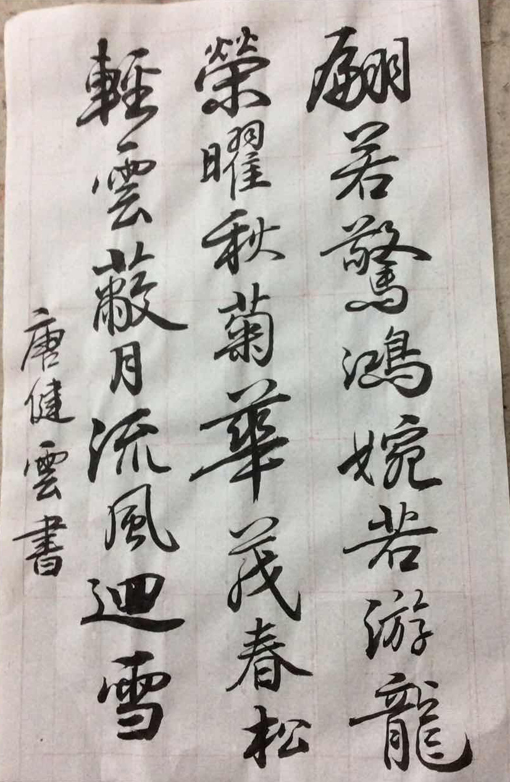 翩若驚鴻婉若游龍
榮曜秋菊華茂春松
輕雲蔽月流風迴雪
唐健雲書